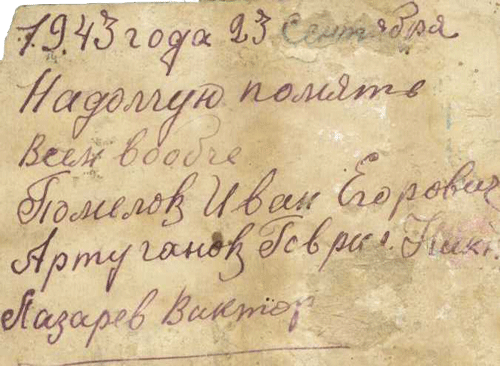 1943 года 23 Сентября
Надолгую помять
всем вобче
Помелов Иван Егорович
Артуганов
Лазарев Виктор